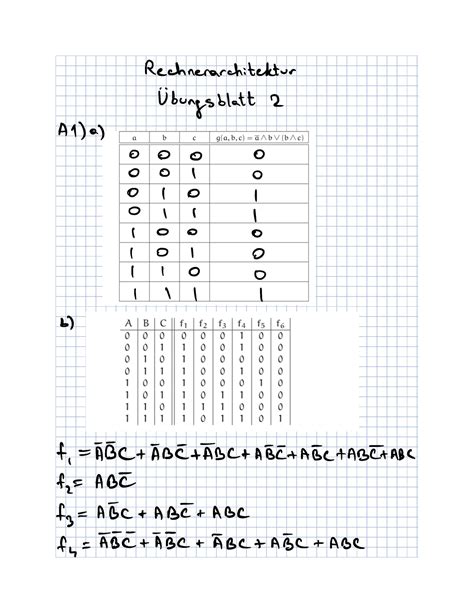 Rechnerarchitektur
Übungsblatt 2
A1) a)
a b c g(a,b,c) = a̅ ∧ b ∨ (b ∧ c)
0 0 0 0
0 0 1 0
0 1 0 1
0 1 1 1
1 0 0 0
1 0 1 0
1 1 0 0
1 1 1 1
b)
A B C f₁ f₂ f₃ f₄ f₅ f₆
0 0 0 0 0 0 1
0 0 1 1 0 0 1
0 1 0 1 0 0 0
0 1 1 1 0 0 1
1 0 0 1 0 0 0
1 0 1 1 0 1 1
1 1 0 1 1 1 0
1 1 1 1 0 1 1
f₁ = A̅B̅C + A̅BC̅ + A̅BC + AB̅C̅ + AB̅C + ABC̅ + ABC
f₂ = ABC̅
f₃ = AB̅C + ABC̅ + ABC
f₄ = A̅B̅C̅ + A̅B̅C + A̅BC + AB̅C + ABC